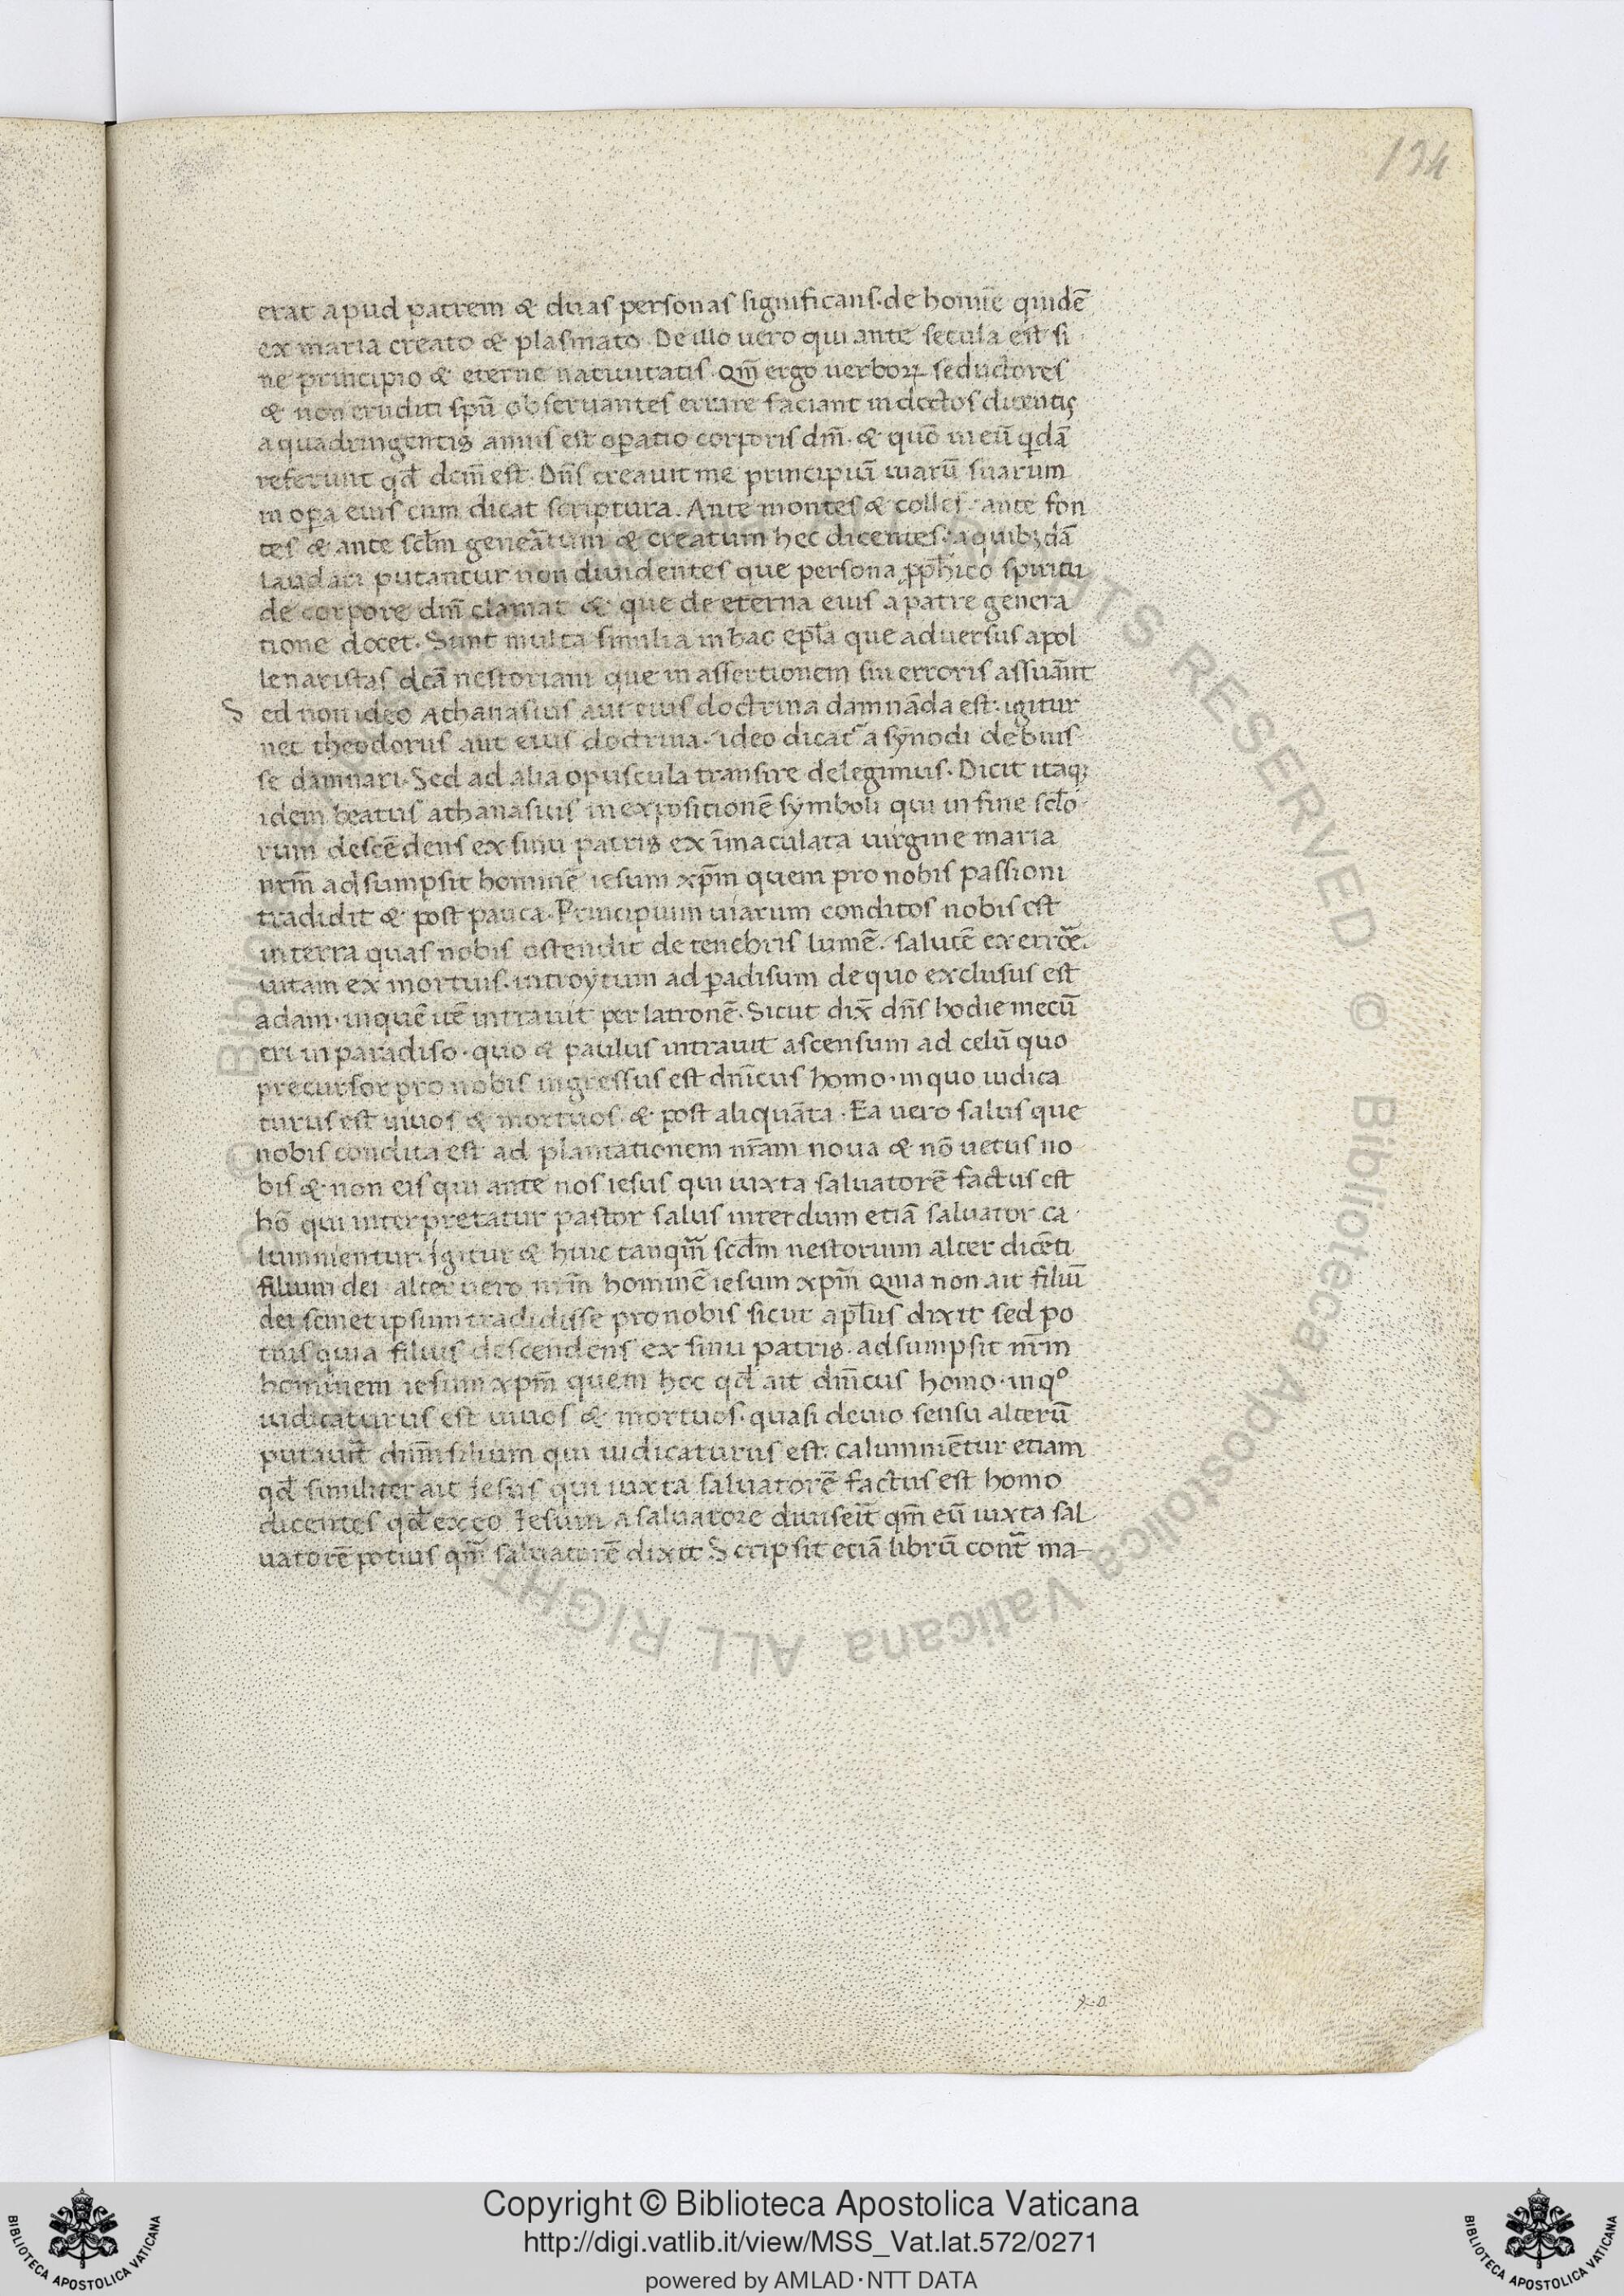 134
erat apud patrem & duas personas significans · de homĩe quidẽ
ex maria creato & plasmato · De illo uero qui ante secula est si
ne principio & eterne natiuitatis · Qm̃ ergo uerboꝝ seductores
& non eruditi spũ obseruantes errare faciant indoctos dicentes
a quadringentis annis est oꝑatio corporis dm̃ · & quõ in eũ qdã
referunt qđ dcm̃ est · Dñs creauit me principiũ uiarũ suarum
in oꝑa eius cum dicat scriptura · Ante montes & colles · ante fon
tes & ante sclm̃ geneãtum & creatum hec dicentes · a quibꝫdã
laudari putantur non diuidentes que persona ꝓph̃ico spiritu
de corpore dm̃ clamat & que de eterna eius a patre genera
tione docet · Sunt multa similia in hac epl̃a que aduersus apol
lenaristas dcã nestoriani que in assertionem sui erroris assuãnt
Sed non ideo Athanasius aut eius doctrina damnãda est · igitur
nec theodorus aut eius doctrina · ideo dicat̃ a synodi debuis
se damnari · Sed ad alia opuscula transire delegimus · Dicit itaqꝫ
idem beatus athanasius in expositionẽ symboli qui in fine sclõ
rum descẽdens ex sinu patris ex ĩmaculata uirgine maria
nrm̃ adsumpsit hominẽ iesum xpm̃ quem pro nobis passioni
tradidit & post pauca · Principium uiarum conditos nobis est
in terra quas nobis ostendit de tenebris lumẽ · salutẽ ex errõe ·
uitam ex mortuis · introytum ad ꝑadisum de quo exclusus est
adam · in quẽ itẽ intrauit per latronẽ · Sicut dix̃ dñs hodie mecũ
eri in paradiso · quo & paulus intrauit ascensum ad celũ quo
precursor pro nobis ingressus est dnĩcus homo · in quo iudica
turus est uiuos & mortuos · & post aliquãta · Ea uero salus que
nobis condita est ad plantationem nr̃am noua & nõ uetus no
bis & non eis qui ante nos iesus qui iuxta saluatorẽ factus est
hõ qui interpretatur pastor salus interdum etiã saluator ca
lumnientur · igitur & hinc tanqm̃ scđm nestorium alter dicẽti
filium dei alter uero nrm̃ hominẽ iesum xpm̃ Quia non ait filiũ
dei semet ipsum tradidisse pro nobis sicut apl̃us dixit sed po
tius quia filius descendens ex sinu patris · adsumpsit nr̃m
hominem iesum xpm̃ quem hec qđ ait dm̃cus homo · in qº
iudicaturus est uiuos & mortuos · quasi deuio sensu alterũ
putauit̃ dnm̃ filium qui iudicaturus est · calumniẽtur etiam
qđ similiter ait Iesus qui iuxta saluatorẽ factus est homo
dicentes qđ ex eo Iesum a saluatore diuiseit̃ qm̃ eũ iuxta sal
uatorẽ potius qm̃ saluatorẽ dixit Scripsit etiã librũ cont̃ ma-
© Biblioteca Apostolica Vaticana ALL RIGHTS RESERVED
Copyright © Biblioteca Apostolica Vaticana
http://digi.vatlib.it/view/MSS_Vat.lat.572/0271
powered by AMLAD·NTT DATA
BIBLIOTECA APOSTOLICA VATICANA
BIBLIOTECA APOSTOLICA VATICANA